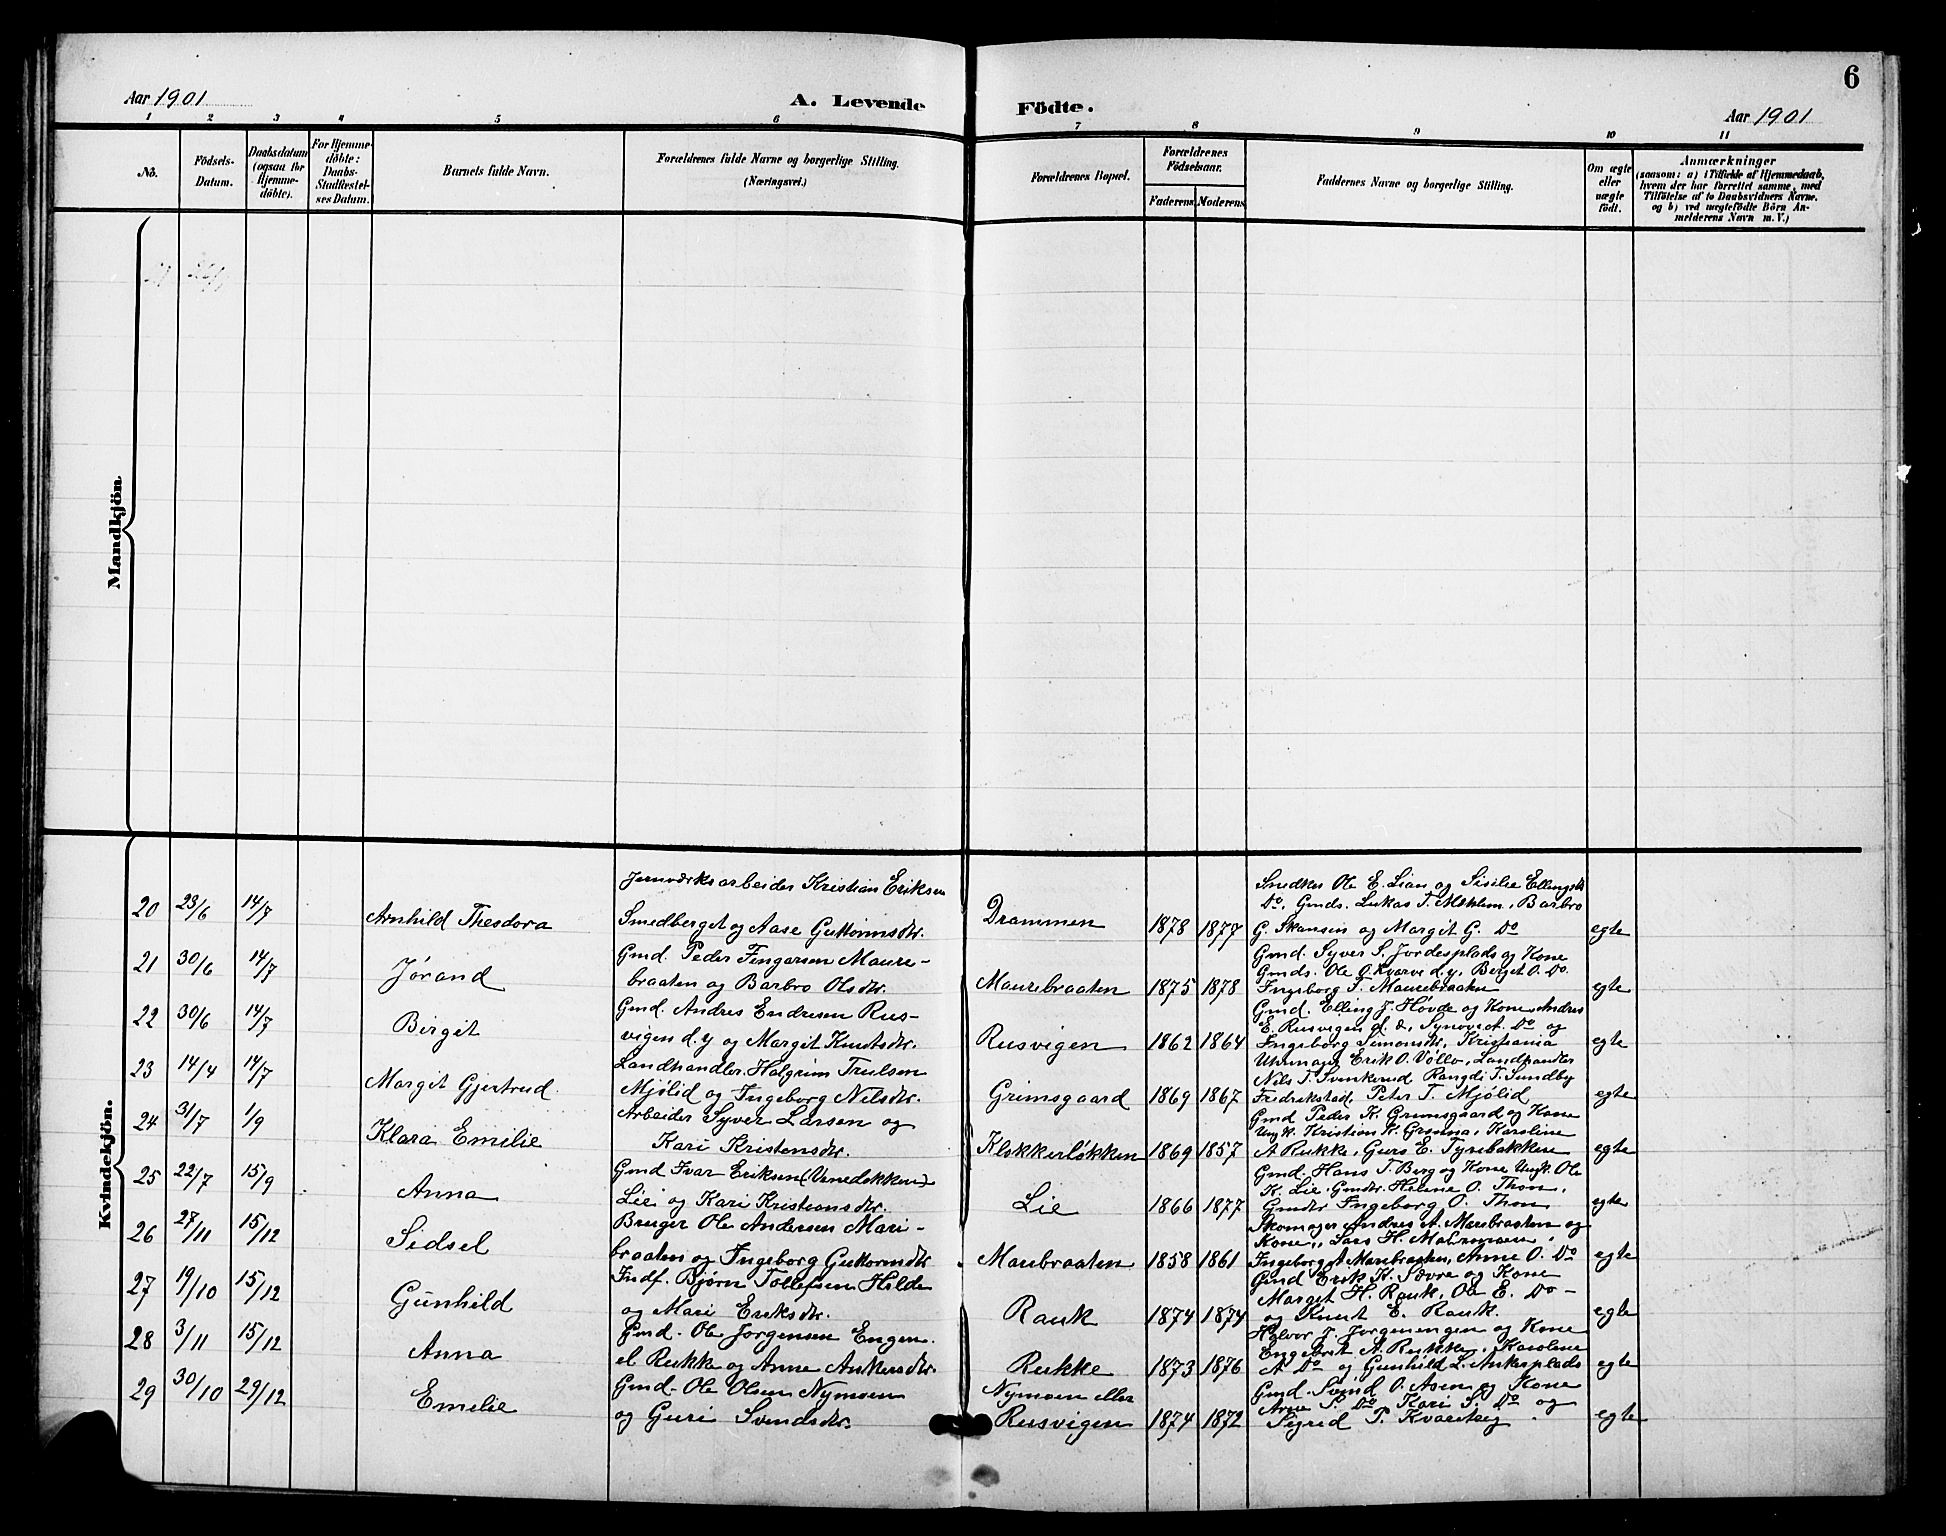 6
Aar 1901
A. Levende Födte.
Aar 1901
1 2 3 4 5 6 7 8 9 10 11
No.
Födsels-
Datum.
Daabsdatum
(ogsaa for
Hjemme-
döbte).
For Hjemme-
döbte:
Daabs-
Stadfæstel-
ses Datum.
Barnets fulde Navn.
Forældrenes fulde Navne og borgerlige Stilling.
(Næringsvei.)
Forældrenes Bopæl.
Forældrenes
Födselsaar.
Faderens Moderens
Faddernes Navne og borgerlige Stilling.
Om ægte
eller
uægte
födt.
Anmærkninger
(saasom: a) i Tilfælde af Hjemmedaab,
hvem der har forrettet samme, med
Tilföielse af to Daabsvidners Navne.
og b) ved uægtefödte Börn An-
melderens Navn m. V.)
Mandkjön.
Kvindekjön.
20 23/6 14/7 Arnhild Theodora
Jernværksarbeider Kristian Eriksen
Smedberget og Aase Guttormsdtr.
Drammen 1878 1877
Snedker Ole E. Lian og Sisilie Ellingsdt
Do, Gmds. Lukas T. Barbro
G. Skansen og Margit G. Do
egte
21 30/6 14/7 Jørand
Gmd. Peder Fingarsen Maure-
braaten og Barbro Olsdtr.
Maurebraaten 1875 1878
Gmd. Syver S. Jordesplads og Kone
Gmds. Ole O. Kvarve d.y, Berget O. Do.
Ingeborg F. Maurebraaten
egte
22 30/6 14/7 Birgit
Gmd. Andres Endresen Rus-
vigen d. y og Margit Knutsdtr.
Rusvigen 1862 1864
Gmd. Elling J. Høvde og Kone, Andres
E. Rusvigen d. æ, Synøve A. Do og
Ingeborg Simonsdtr, Kristiania
egte
23 14/4 14/7 Margit Gjertrud
Landhandler Halgrim Trulsen
Mjølid og Ingeborg Nilsdtr.
Grimsgaard 1869 1867
Uhrmager Erik O. Vøllo, Landhandler
Nils T. Svenkerud Rangdi T. Sundby
Fredrikstad, Peter T. Mjølid
egte
24 31/7 1/9 Klara Emilie
Arbeider Syver Larsen og
Kari Kristensdtr.
Klokkerløkken 1869 1857
Gmd Peder K. Grimsgaard og Kone
Ungk. Kristian K. Karoline
A Rukke, Guro E. Tyrebakken
egte
25 22/7 15/9 Anna
Gmd Ivar Eriksen
Lie og Kari Kristiansdtr.
Lie 1866 1877
Gmd. Hans T. Berg og Kone Ungk. Ole
K. Lie, Gmdtr. Helene O. Thon,
Gmdtr Ingeborg O. Thon
egte
26 27/11 15/12 Sidsel
Bruger Ole Andersen Mari-
braaten og Ingeborg Guttormsdtr
Maribraaten 1858 1861
Skomager Andres A. Maribraaten og
Kone, Lars H.
Ingeborg A Maribraaten, Anne O. Do
egte
27 19/10 15/12 Gunhild
Indf. Bjørn Tollefsen Hilde
og Mari Eriksdtr.
Rauk 1874 1874
Gmd Erik K. Sævre og Kone
Marget H. Rauk, Ole E. Do-
og Knut E. Rauk.
egte
28 3/11 15/12 Anna
Gmd. Ole Jørgensen Engen
el Rukke og Anne Ankersdtr.
Rukke 1873 1876
Halvor J. Jorgenengen og Kone
Engebrit A. Rukke, Karoline
A Do og Gunhild L. Ankersplads
egte
29 30/10 29/12 Emilie
Gmd. Ole Olsen Nymoen
og Guri Svendsdtr.
Nymoen eller
Rusvigen 1874 1872
Gmd. Svend O. Asen og Kone
Arne S. Do Kari S. Do og
Sigrid P.
egte